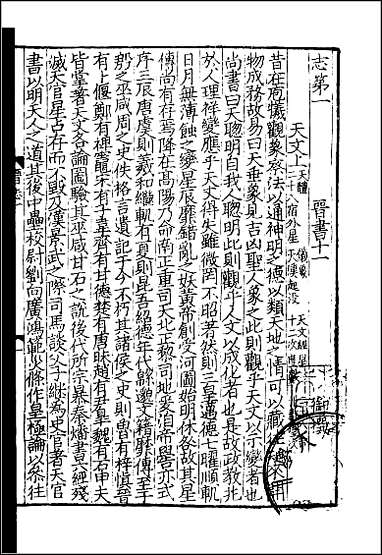 志第一　晉書十一
天文上　天體　儀象　天文經星
二十八宿外星　天漢起没　十二次度
昔在庖犧觀象察法以通神明之德以類天地之情可以藏
物成務故易曰天垂象見吉凶聖人象之此則觀乎天文以示變者也
尚書曰天聰明自我人聰明此則觀乎人文以成化者也是故政教兆
於人理祥變應乎天文得失雖微罔不昭著然則三皇邁德七曜順軌
日月無薄蝕之變星辰靡錯亂之妖黄帝創受河圖始明休咎故其星
傳尚有存焉降在高陽乃命南正重司天北正黎司地爰洎帝嚳亦式
序三辰唐虞則羲和繼軌有夏則昆吾紹德年代緜邈文籍靡傳至于
殷之巫咸周之史佚格言遺記于今不朽其諸侯之史則魯有梓慎晉
有卜偃鄭有裨竈宋有子韋齊有甘德楚有唐昧趙有尹皋魏有石申夫
皆掌著天文各論圖驗其巫咸甘石之說後代所宗暴秦燔書六經殘
滅天官星占存而不毀及漢景武之際司馬談父子繼為史官著天官
書以明天人之道其後中壘校尉劉向廣鴻範災條作皇極論以參往